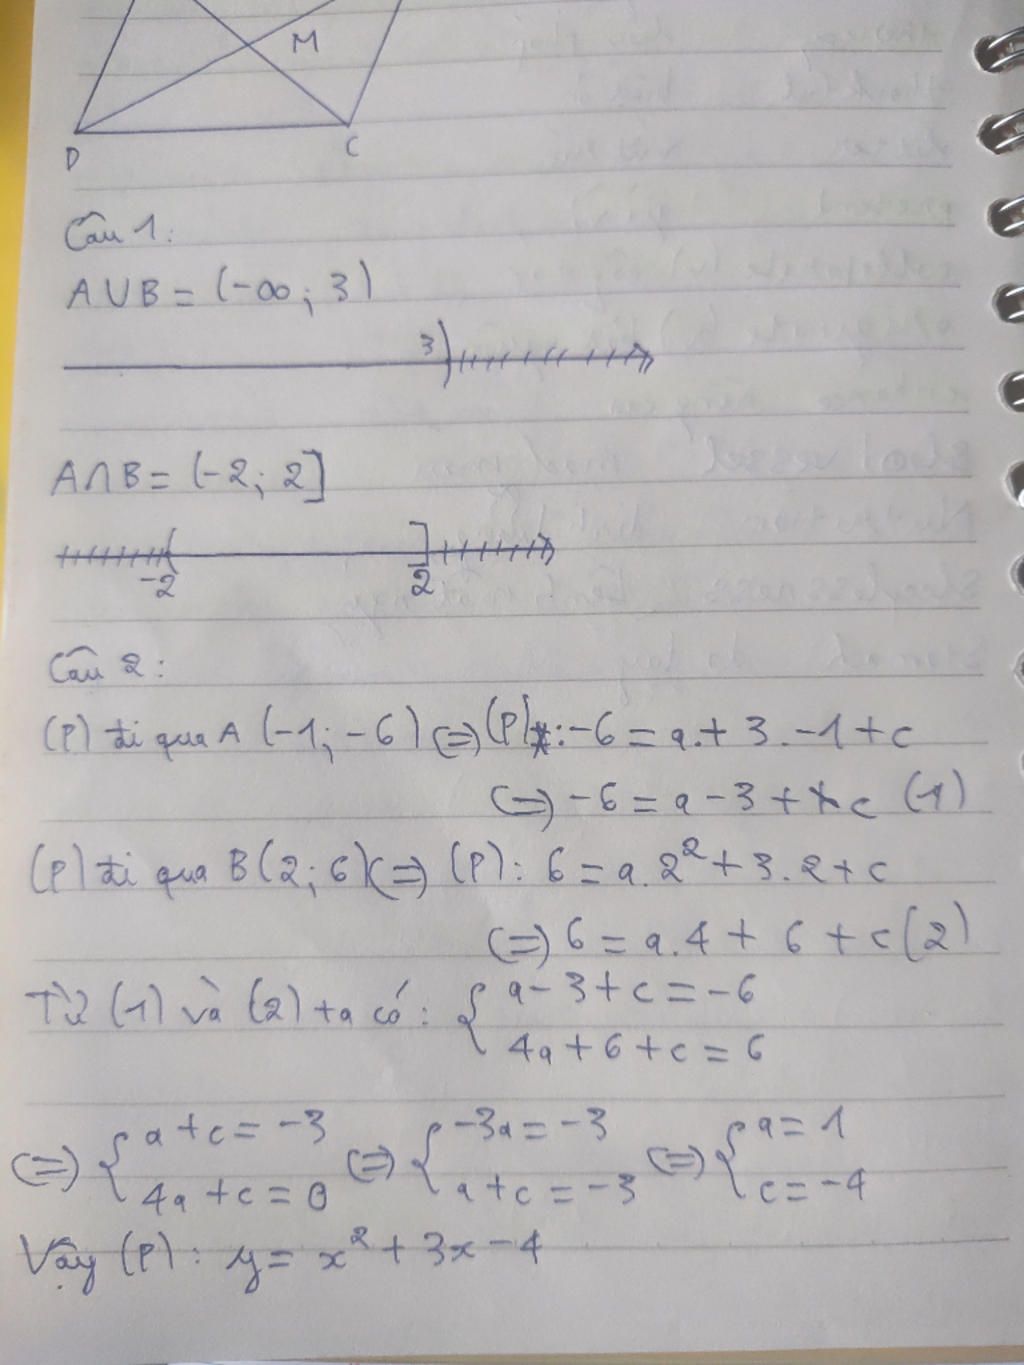 M
D C
Câu 1:
A∪B = (-∞; 3)
3
A∩B = (-2; 2]
-2 2
Câu 2:
(P) đi qua A (-1; -6) (=) (P): -6 = a. + 3. -1 + c
(=) -6 = a - 3 + c (1)
(P) đi qua B (2; 6) (=) (P): 6 = a. 2² + 3. 2 + c
(=) 6 = a. 4 + 6 + c (2)
Từ (1) và (2) ta có: { a - 3 + c = -6
4a + 6 + c = 6
(=) { a + c = -3 (=) { -3a = -3 (=) { a = 1
4a + c = 0 a + c = -3 c = -4
Vậy (P): y = x² + 3x - 4